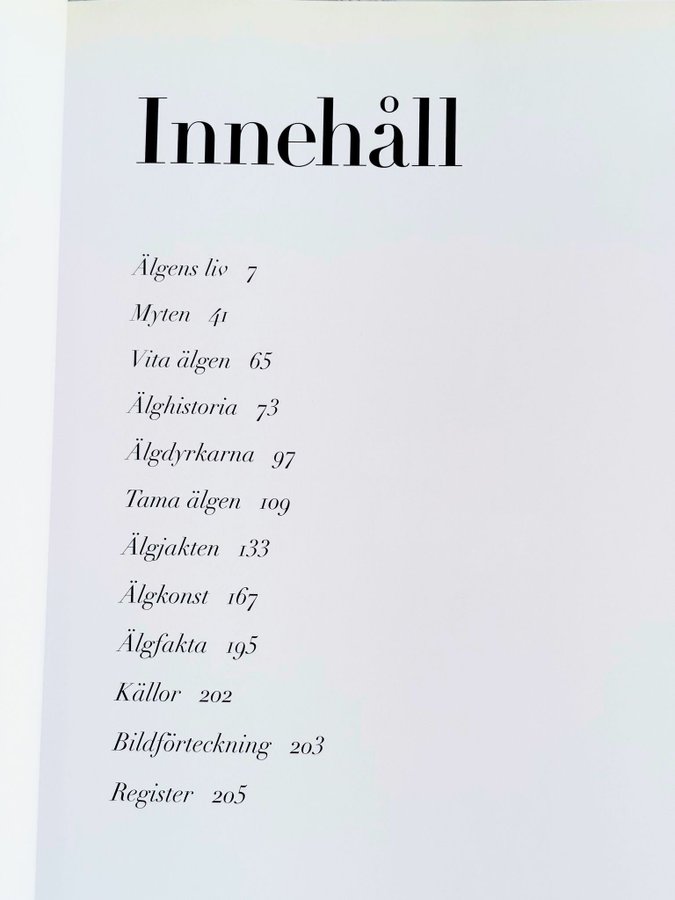 Innehåll
Älgens liv 7
Myten 41
Vita älgen 65
Älghistoria 73
Älgdyrkarna 97
Tama älgen 109
Älgjakten 133
Älgkonst 167
Älgfakta 195
Källor 202
Bildförteckning 203
Register 205